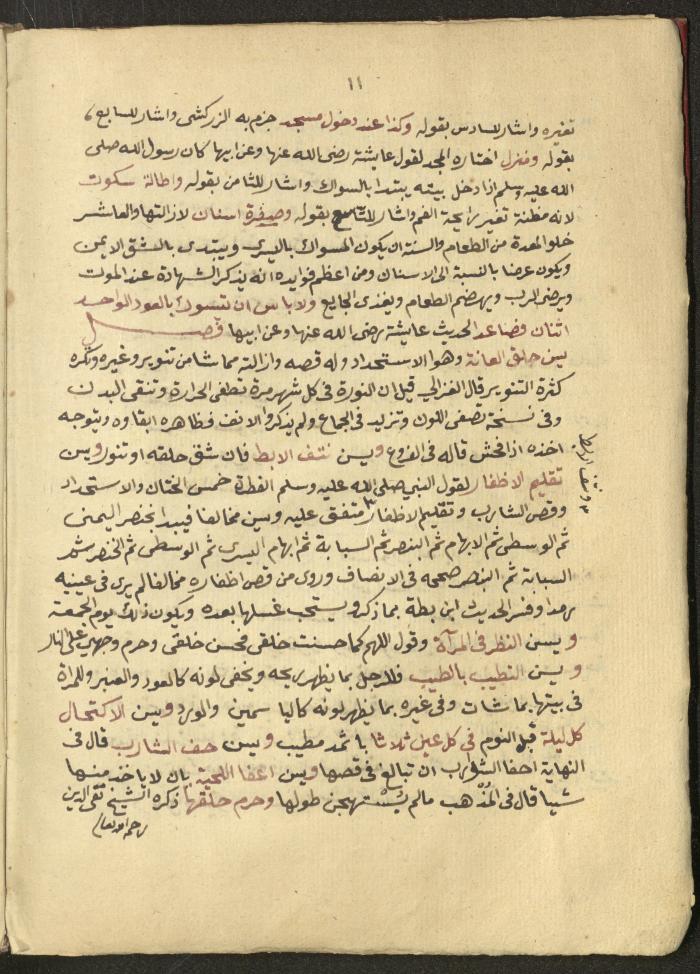 ١١
تغيره واشار للسادس بقوله وكذا عند دخول مسجد جزم به الزركشى واشار للسابع
بقوله ومنزل اختاره المجد لقول عايشة رضى الله عنها وعن ابيها كان رسول الله صلى
الله عليه وسلم اذا دخل بيته يبتدا بالسواك واشار للثامن بقوله واطالة سكوت
لانه مظنة تغير رايحة الفم واشار للتاسع بقوله وصفرة اسنان لازالتها والعاشر
خلو المعدة من الطعام والسنة ان يكون المسواك باليسرى ويبتدى بالشق الايمن
ويكون عرضا بالنسبة الى الاسنان ومن اعظم فوايده انه يذكر الشهادة عند الموت
ويرضى الرب ويهضم الطعام ويغذى الجايع ولا باس ان تتسوك بالعود الواحد
اثنان فصاعد الحديث عايشة رضى الله عنها وعن ابيها فصل
يسن حلق العانة وهو الاستحداد وله قصه وازالته مما شا من تنوير وغيره وتكره
كثرة التنوير قال الغزالى قيل ان النورة فى كل شهر مرة تطفى الحرارة وتنقى البدن
وفى نسخة تصفى اللون وتزيد فى الجماع ولم يذكروا الانف فظاهره ابقاوه ويتوجه
اخذه اذا فحش قاله فى الفروع ويسن نتف الابط فان شق حلقه او تنور ويسن
تقليم الاظفار لقول النبى صلى الله عليه وسلم الفطرة خمس الختان والاستحداد
ونتف الابط
وقص الشارب وتقليم الاظفار متفق عليه وسن مخالفا فيبدا بخنصر اليمنى
ثم الوسطى ثم الابهام ثم البنصر ثم السبابة ثم ابهام اليسرى ثم الوسطى ثم الخنصر ثم
السبابة ثم البنصر صححه فى الانصاف وروى من قص اظفاره مخالفا لم يرى فى عينيه
رمدا وفسر الحديث ابن بطة بما ذكر ويستحب غسلها بعده ويكون ذلك يوم الجمعة
ويسن النظر فى المرآة وقول اللهم كما حسنت خلقى فحسن خلقى وحرم وجهى على النار
ويسن التطيب بالطيب فللرجل بما يظهر ريحه ويخفى لونه كالعود والعنبر وللمراة
فى بيتها بما شات وفى غيره بما يظهر لونه كالياسمين والورد ويسن الاكتحال
كل ليلة قبل النوم فى كل عين ثلاثا باثمد مطيب ويسن حف الشارب قال فى
النهاية احفا الشوارب ان تبالغ فى قصها ويسن اعفا اللحية بان لا ياخذ منها
شيا قال فى المذهب مالم يستهجن طولها وحرم حلقها ذكره الشيخ تقى الدين
رحمه الله تعالى